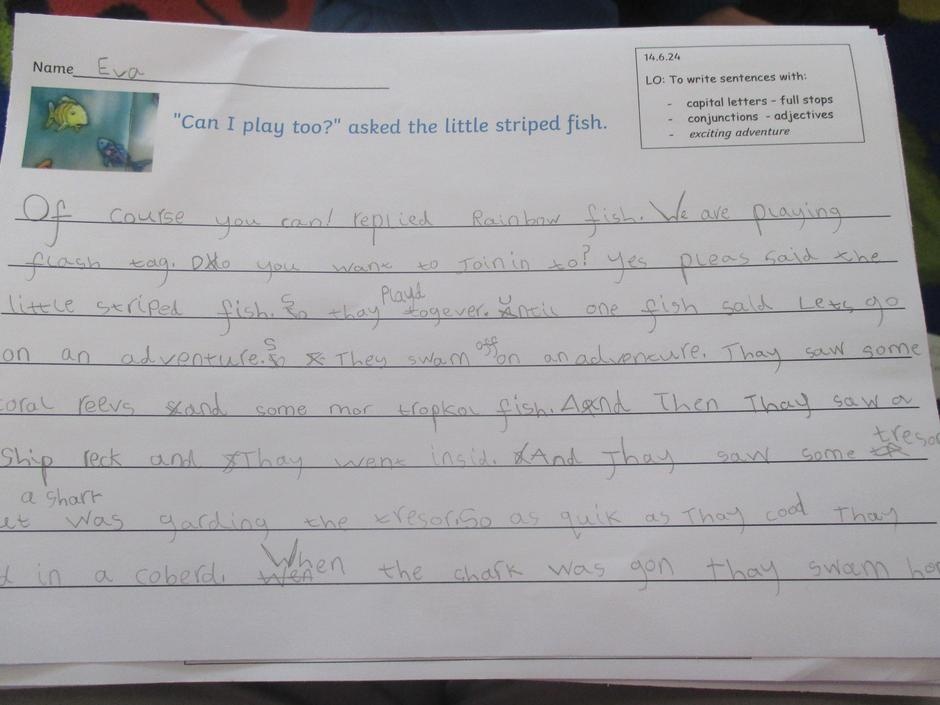 Name Eva
14.6.24
LO: To write sentences with:
- capital letters - full stops
- conjunctions - adjectives
- exciting adventure
"Can I play too?" asked the little striped fish.
Of course you can! replied Rainbow fish. We are playing
flash tag. Do you want to Join in to? Yes pleas said the
little striped fish. So thay playd togever. until one fish said Lets go
on an adventure. So They swam off on an advencure. Thay saw some
coral reevs and some mor tropkal fish. And Then Thay saw a
Ship reck and Thay went insid. And Thay saw some tresor
a shark
was garding the tresor. So as quik as Thay cood Thay
in a coberd. When the shark was gon thay swam